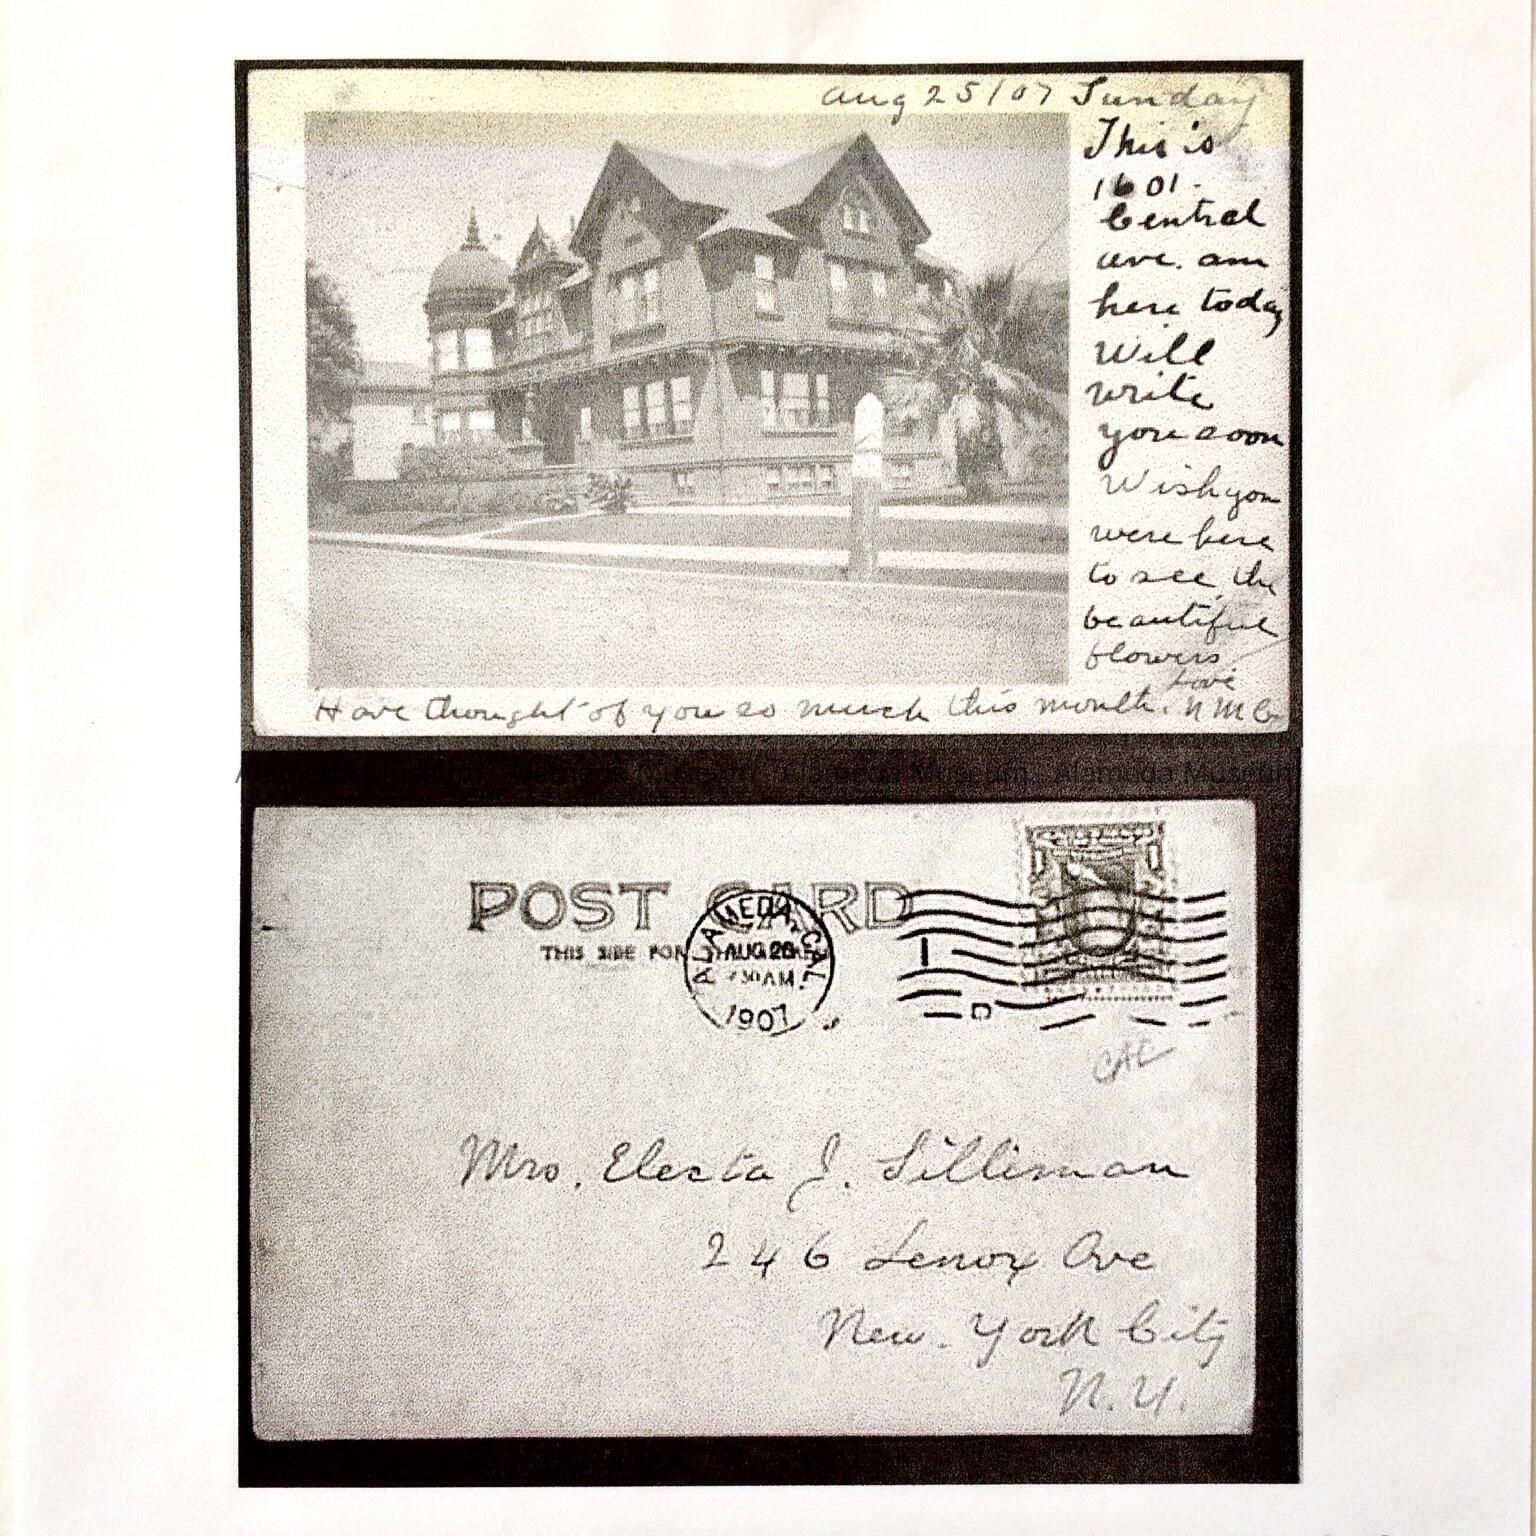 Aug 25/07 Sunday
This is
1601.
Central
ave. am
here today
Will
write
you soon
Wish you
were here
to see the
beautiful
flowers
Love
Have thought of you so much this month. N M G
Alameda Museum Alameda Museum Alameda Museum
POST CARD
THIS SIDE FOR THE
ALAMEDA, CAL.
AUG 26
30 AM.
1907
1
D
CAL
Mrs. Electa J. Silliman
246 Lenox Ave
New. York City
N.Y.